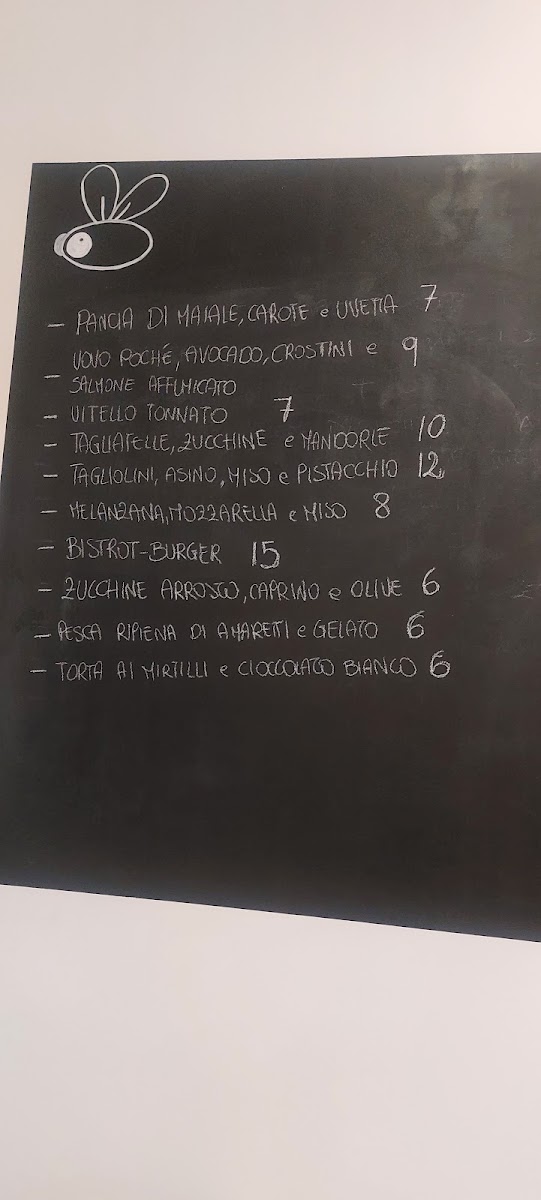 - PANCIA DI MAIALE, CAROTE e UVETTA 7
- UOVO POCHÉ, AVOCADO, CROSTINI e 9
SALMONE AFFUMICATO
- VITELLO TONNATO 7
- TAGLIATELLE, ZUCCHINE e MANDORLE 10
- TAGLIOLINI, ASINO, MISO e PISTACCHIO 12
- MELANZANA, MOZZARELLA e MISO 8
- BISTROT-BURGER 15
- ZUCCHINE ARROSTO, CAPRINO e OLIVE 6
- PESCA RIPIENA DI AMARETTI e GELATO 6
- TORTA AI MIRTILLI e CIOCCOLATO BIANCO 6